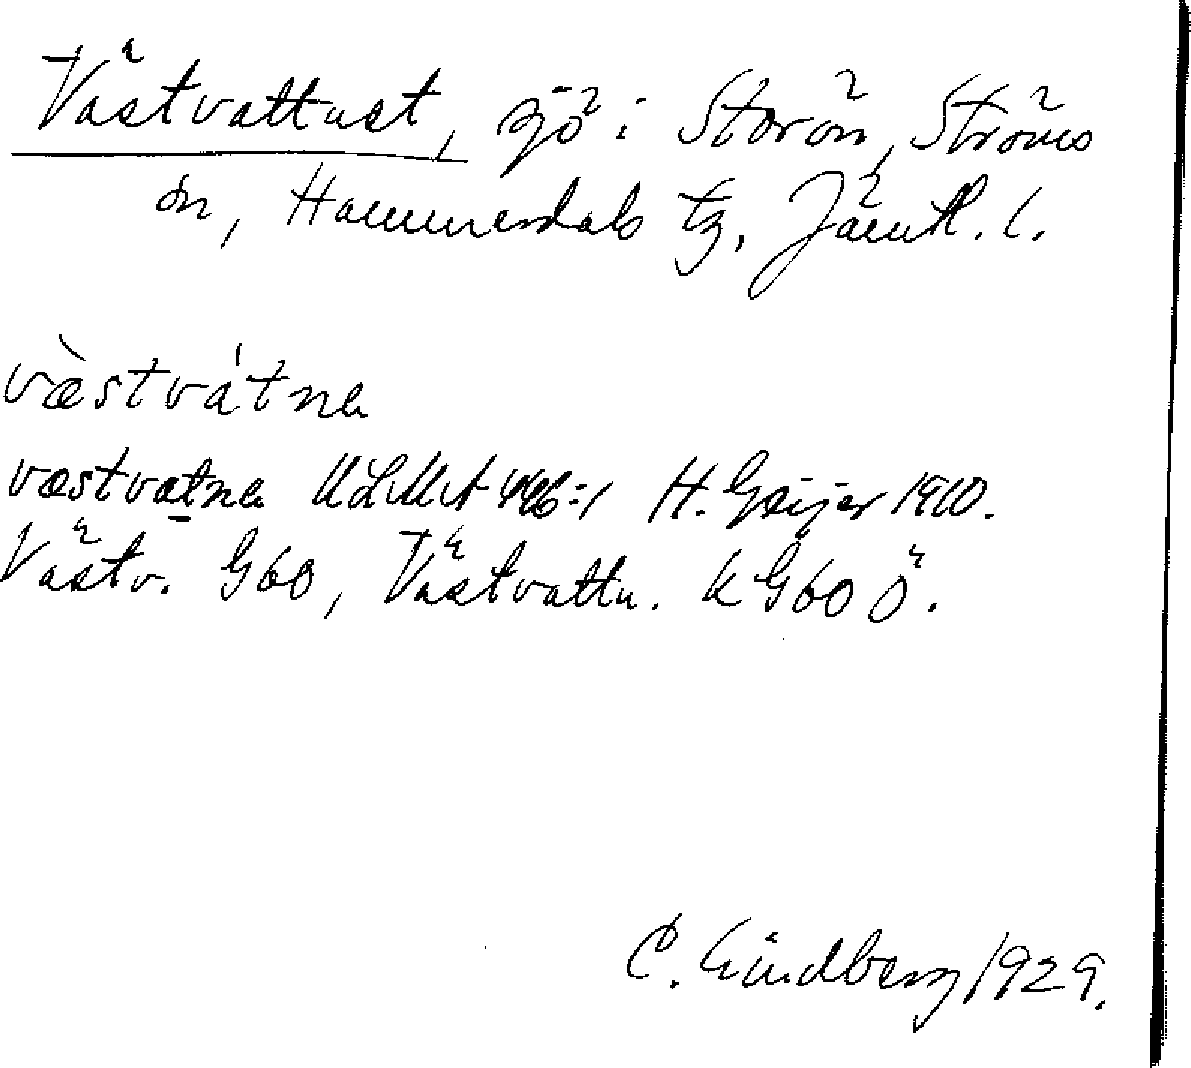 Västvattnet, sjö i Storön, Ströms
sn, Hammerdals tg, Jämtl. l.
vὲstvátnɐ
væstvatnɐ ULMA 446:1 H. Geijer 1910.
Västv. G60, Västvattn. kG60 Ö.
C. Lindberg 1929.